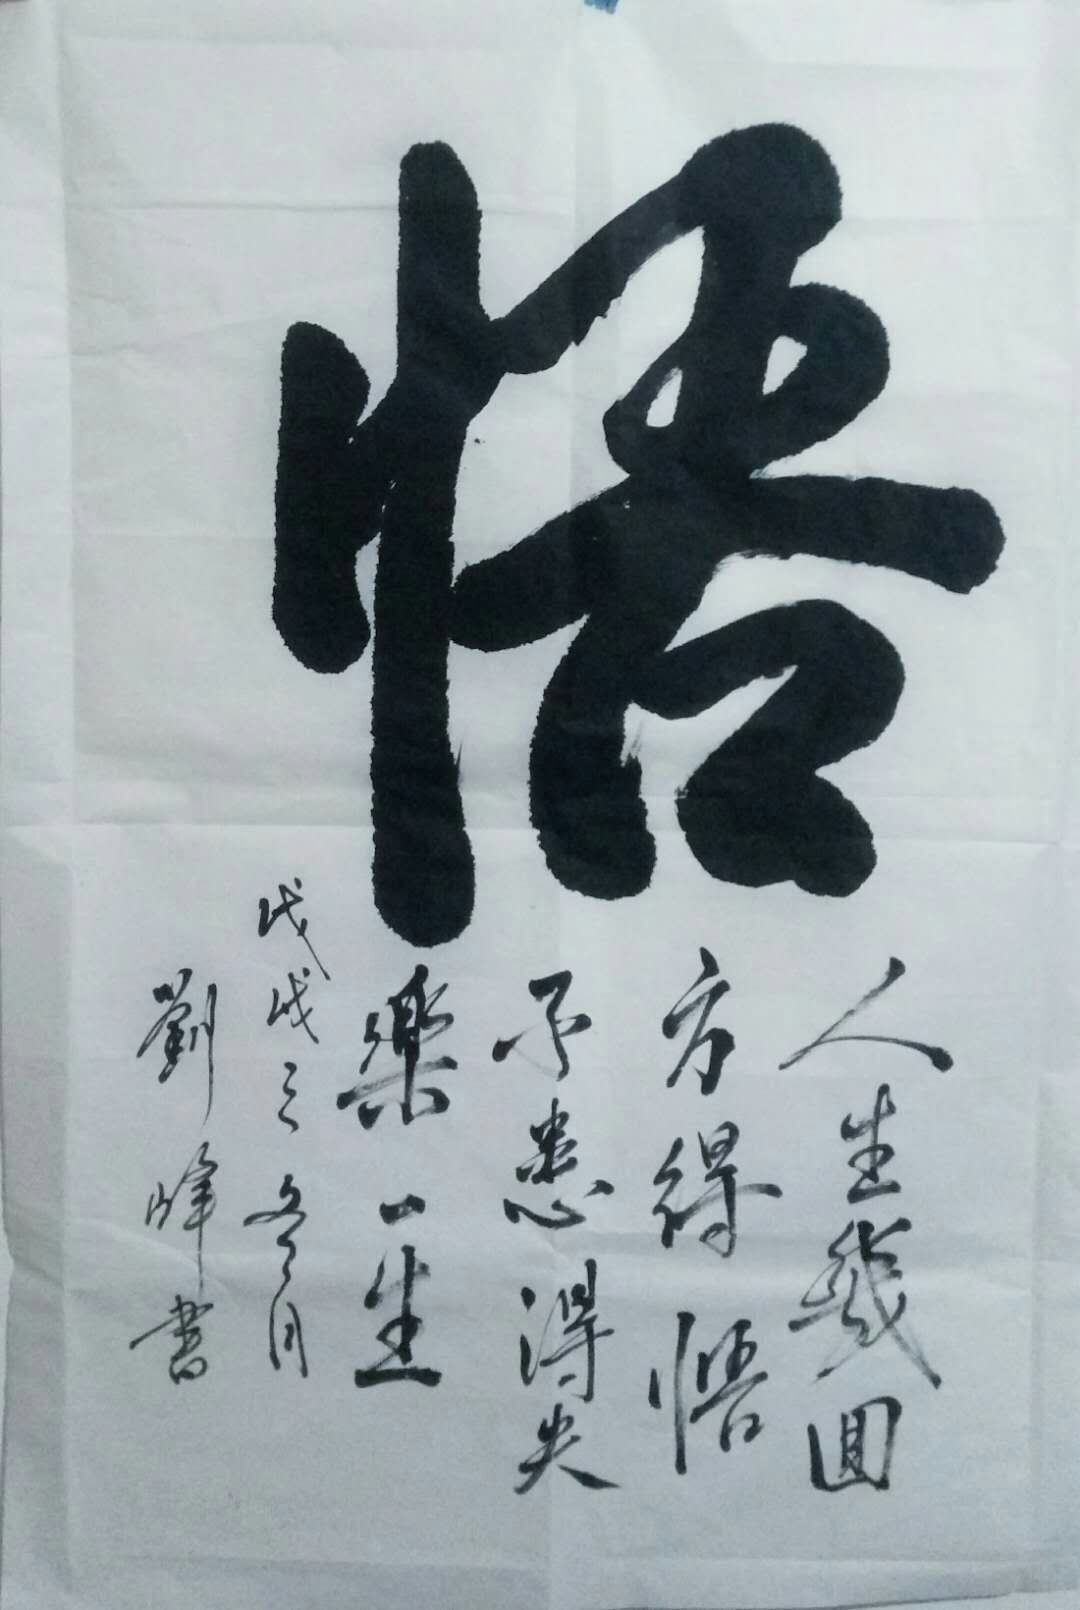 悟
人生幾圓
方得悟
不患得失
樂一生
戊戌之冬月
劉峰書